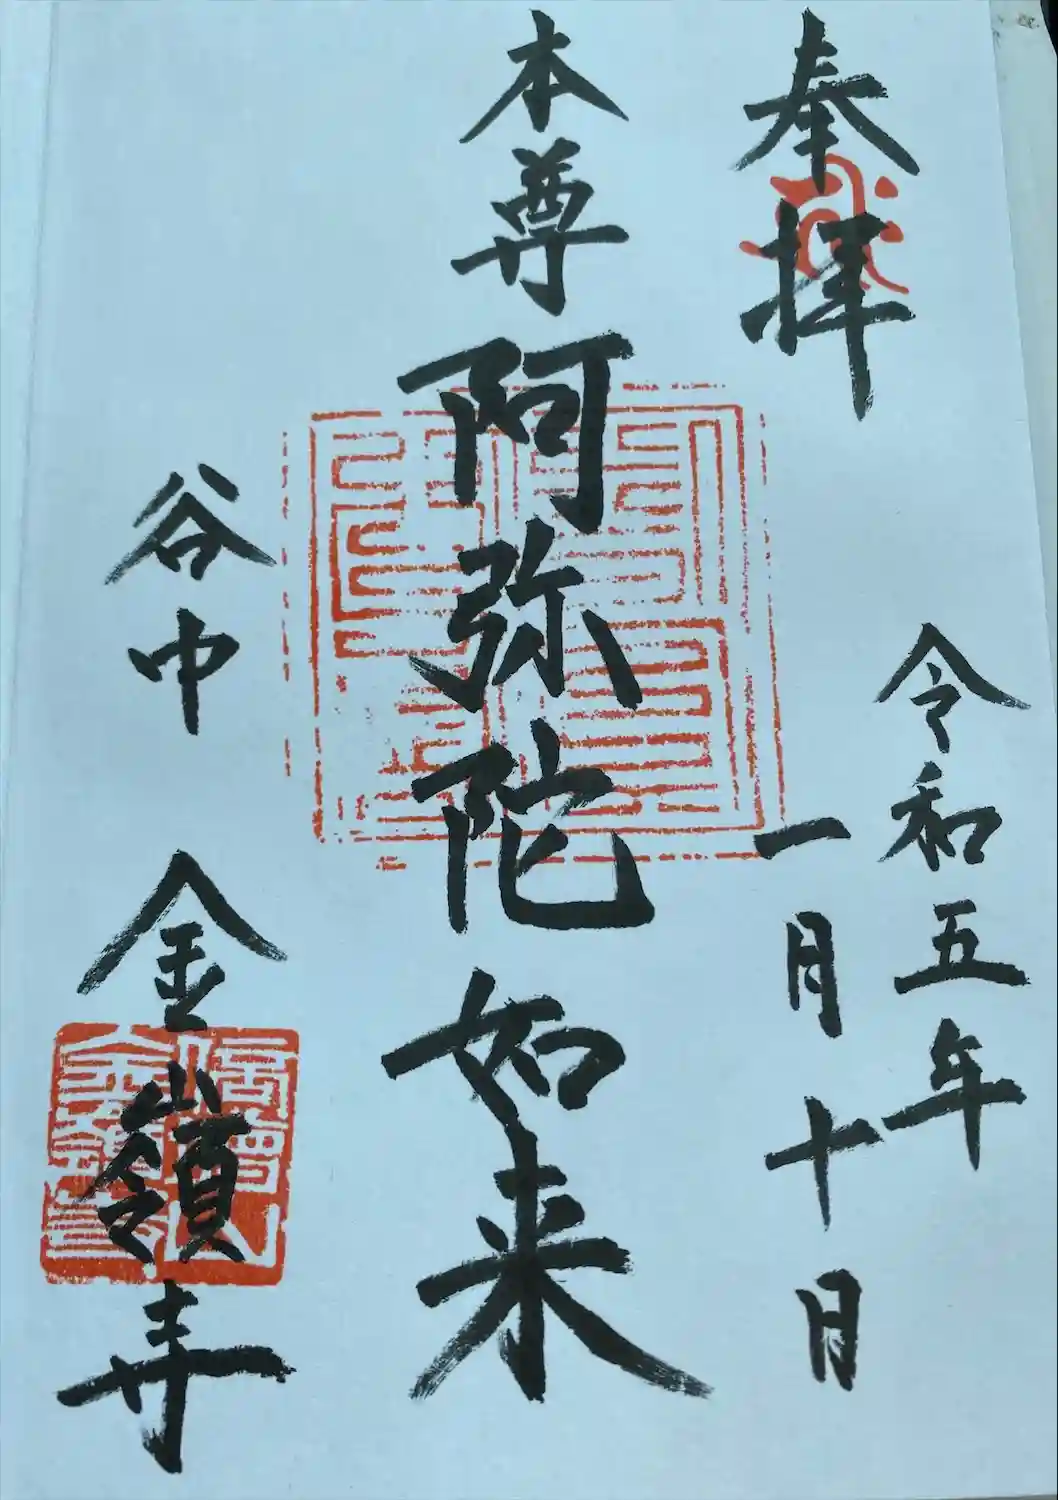 奉拝
令和五年
一月十日
本尊 阿弥陀如来
谷中 金嶺寺